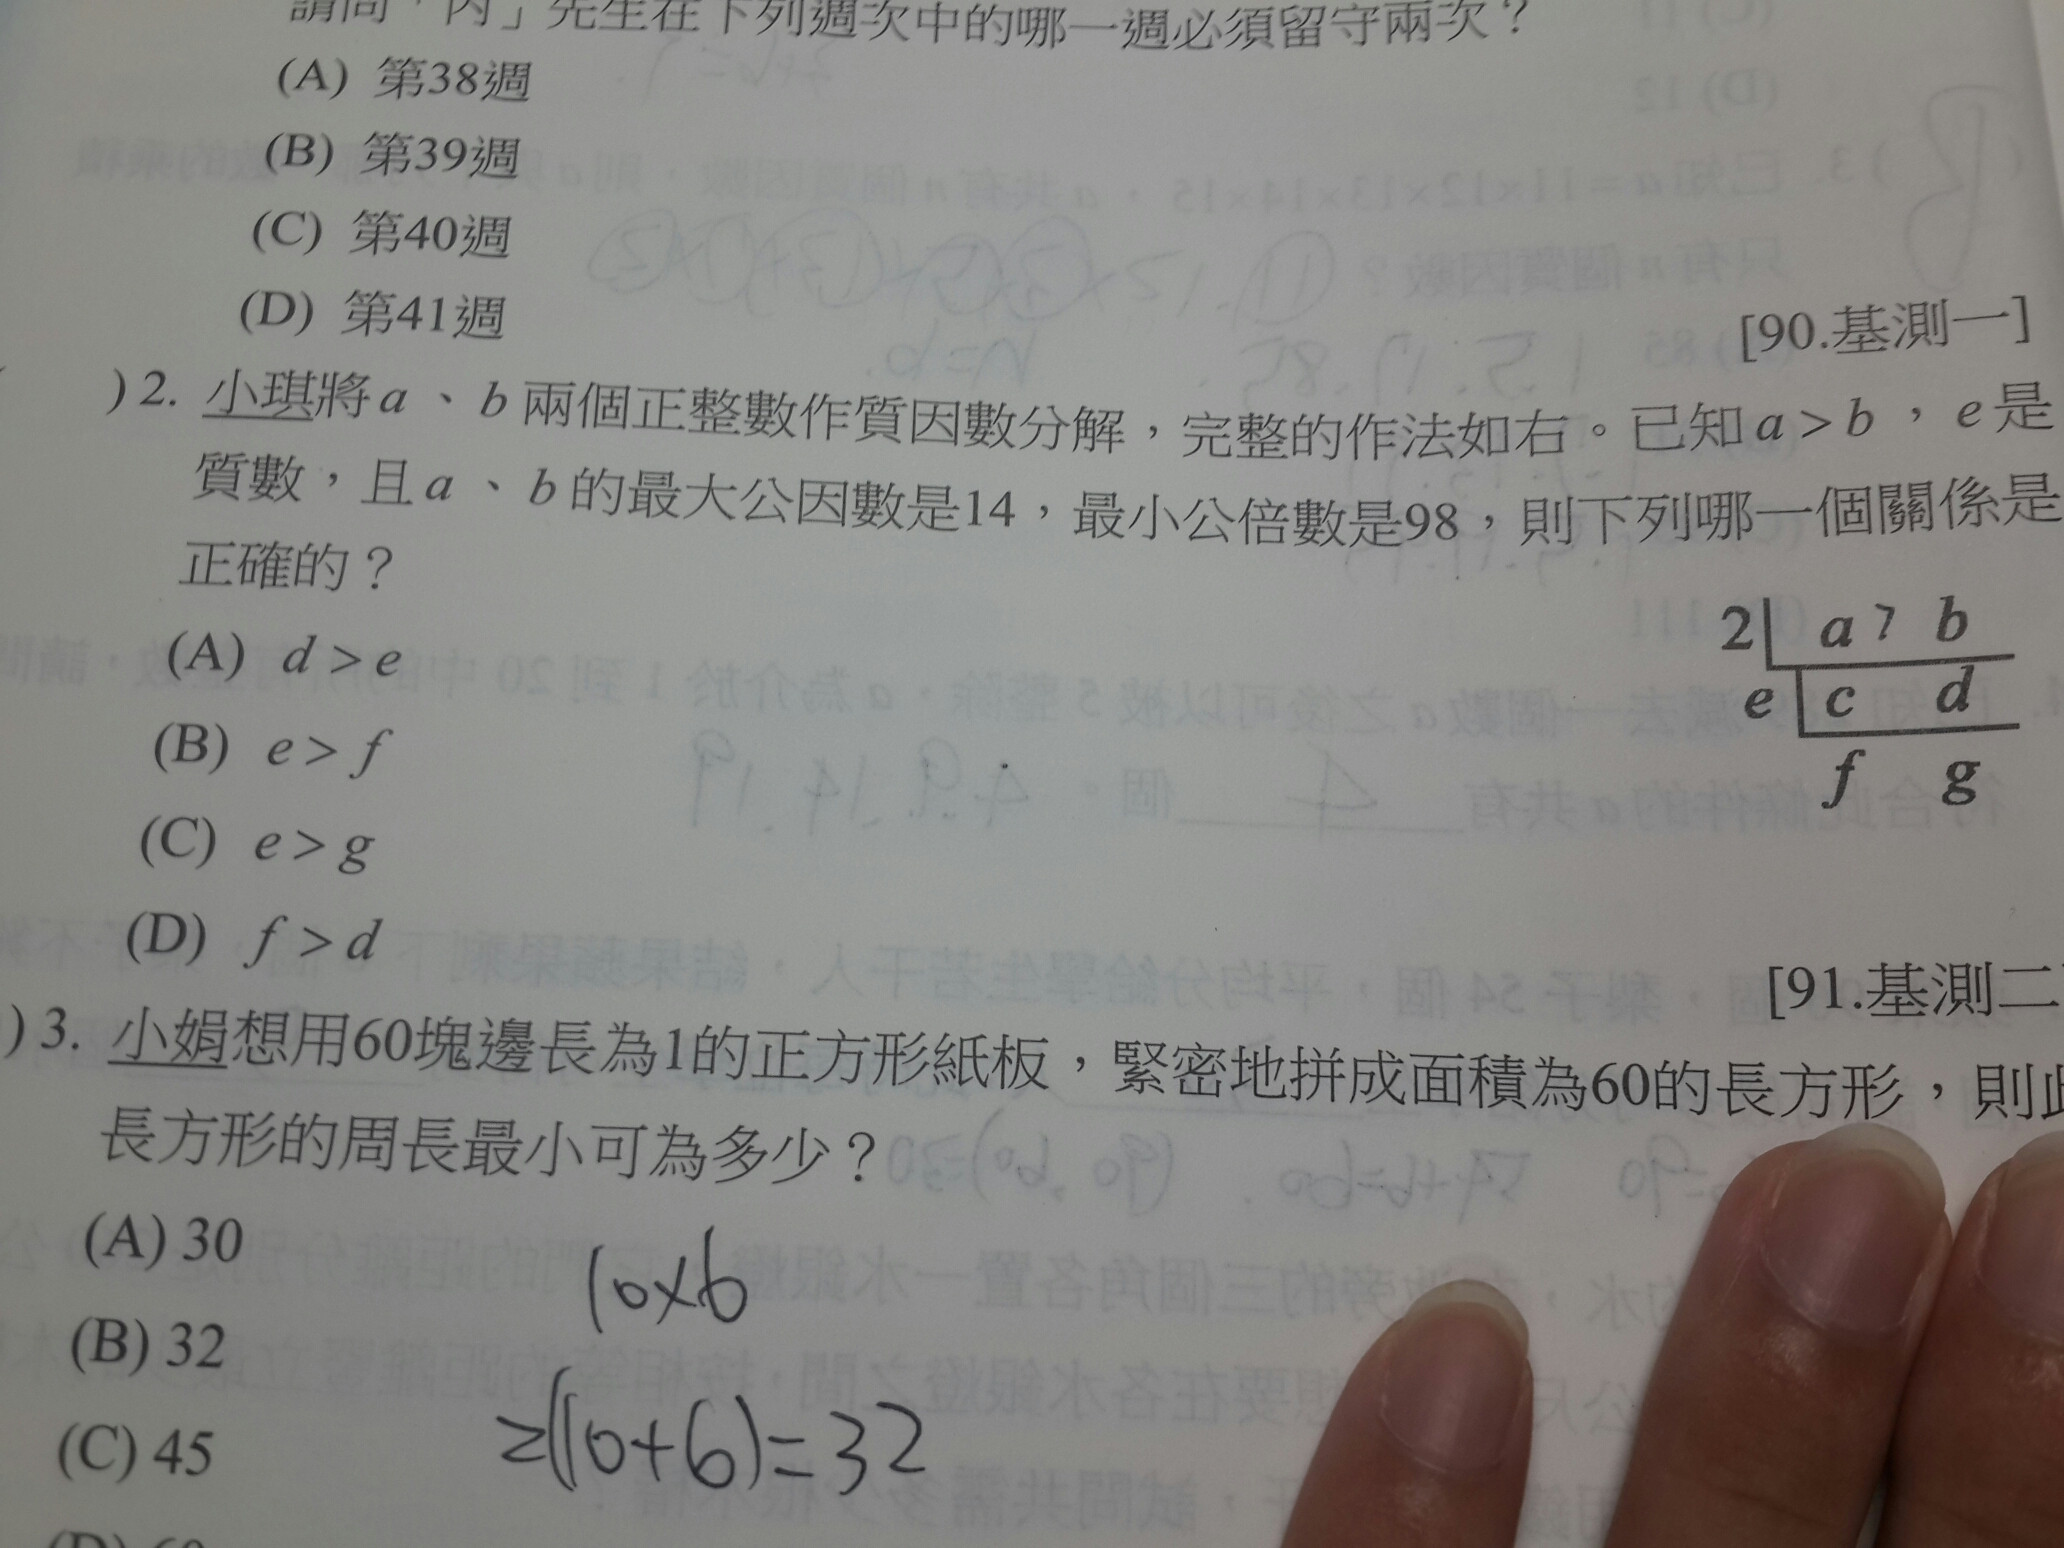 請問「丙」先生在下列週次中的哪一週必須留守兩次？
(A) 第38週
(B) 第39週
(C) 第40週
(D) 第41週
[90.基測一]
)2. 小琪將a、b兩個正整數作質因數分解，完整的作法如右。已知a>b，e是
質數，且a、b的最大公因數是14，最小公倍數是98，則下列哪一個關係是
正確的？
2 a > b
e c d
f g
(A) d>e
(B) e>f
(C) e>g
(D) f>d
[91.基測二]
)3. 小娟想用60塊邊長為1的正方形紙板，緊密地拼成面積為60的長方形，則此
長方形的周長最小可為多少？
(A) 30
(B) 32
(C) 45
10x6
2(10+6)=32